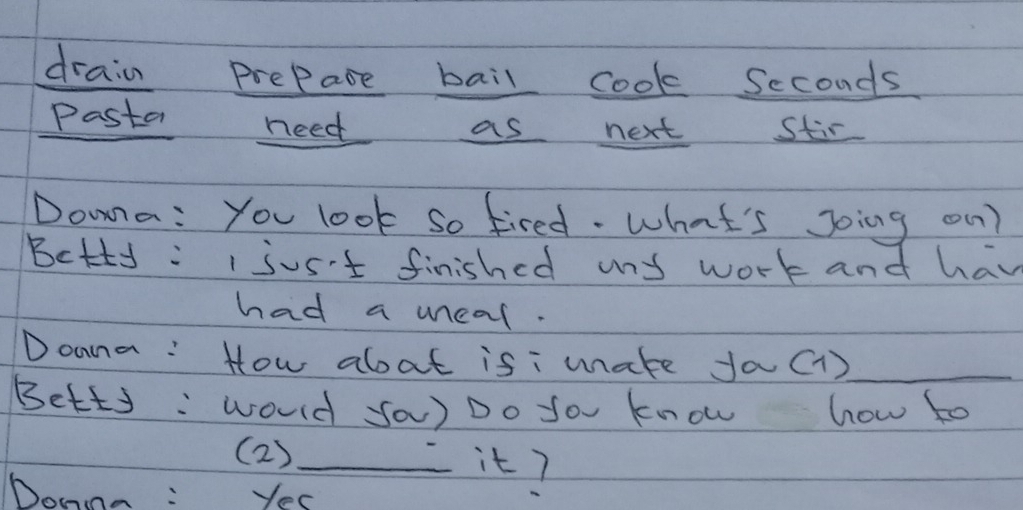 drain prepare bail cook seconds
pasta need as next stir
Donna: You look so tired. What's going on?
Betty: i just finished my work and hav
had a meal.
Donna: How about if i make you (1)______
Betty: would you? Do you know how to
(2)______ it?
Donna: Yes